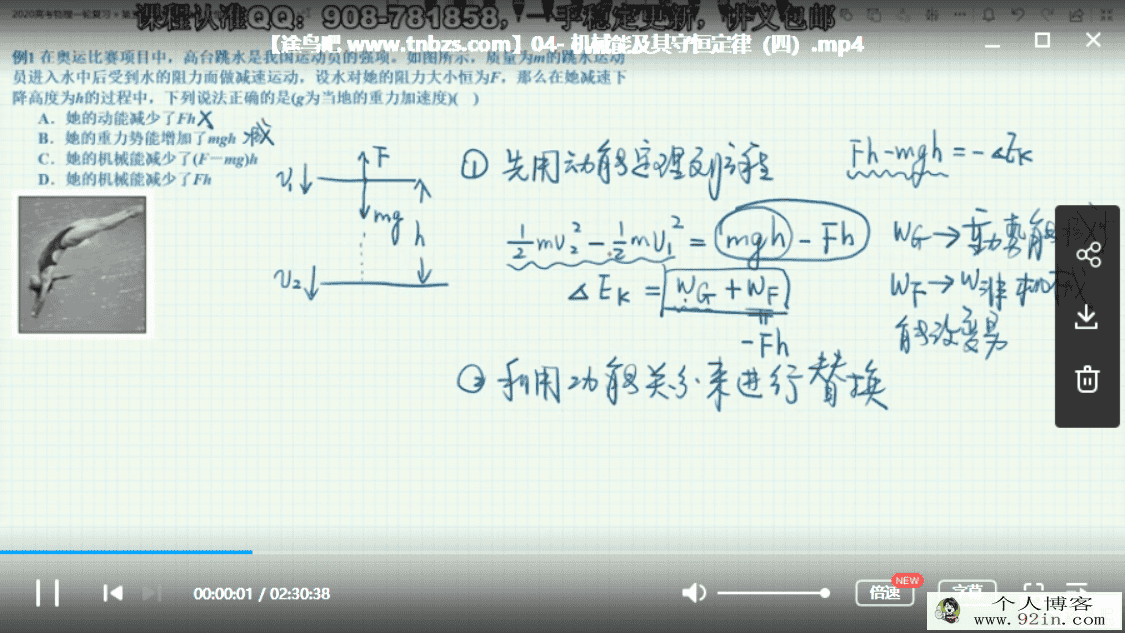 2020高考物理一轮复习
课程认准QQ：908-781858，一手稳定更新，讲义包邮
【途鸟吧 www.tnbzs.com】04- 机械能及其守恒定律（四）.mp4
例1 在奥运比赛项目中，高台跳水是我国运动员的强项。如图所示，质量为m的跳水运动
员进入水中后受到水的阻力而做减速运动，设水对她的阻力大小恒为F，那么在她减速下
降高度为h的过程中，下列说法正确的是(g为当地的重力加速度)( )
A．她的动能减少了Fh X
B．她的重力势能增加了mgh 减
C．她的机械能减少了(F－mg)h
D．她的机械能减少了Fh
F
V₁
mg
h
V₂
① 先用动能定理列方程
Fh-mgh = -ΔEk
½mv₂² - ½mv₁² = mgh - Fh
ΔEk = WG + WF
-Fh
WG → 重力势能
WF → W非 机
能改变易
② 利用功能关系来进行替换
00:00:01 / 02:30:38
倍速
NEW
字幕
个人博客
www.92in.com